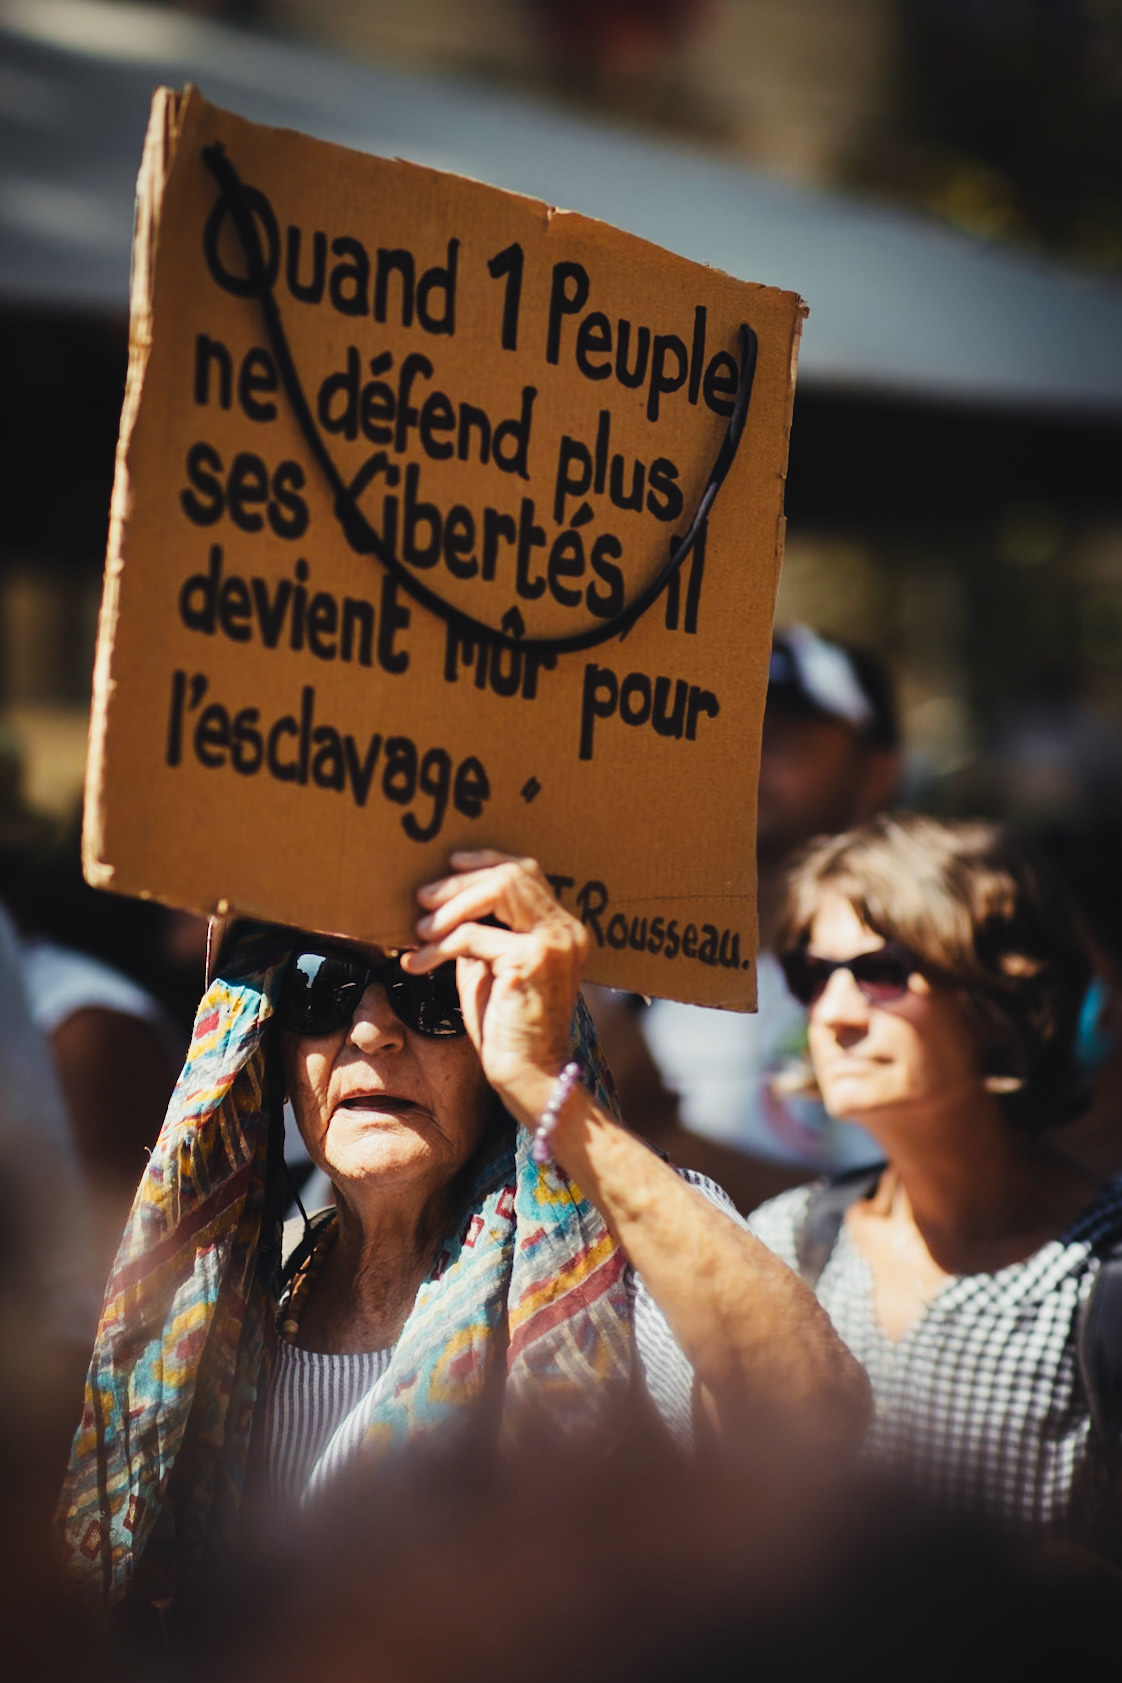 Quand 1 Peuple
ne défend plus
ses Libertés, il
devient mûr pour
l'esclavage "
Rousseau.